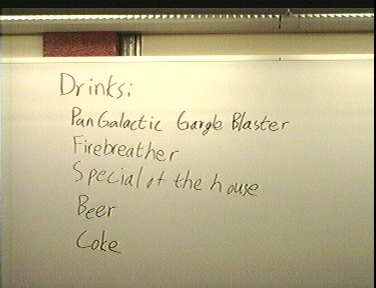 Drinks:
PanGalactic Gargle Blaster
Firebreather
Special of the house
Beer
Coke